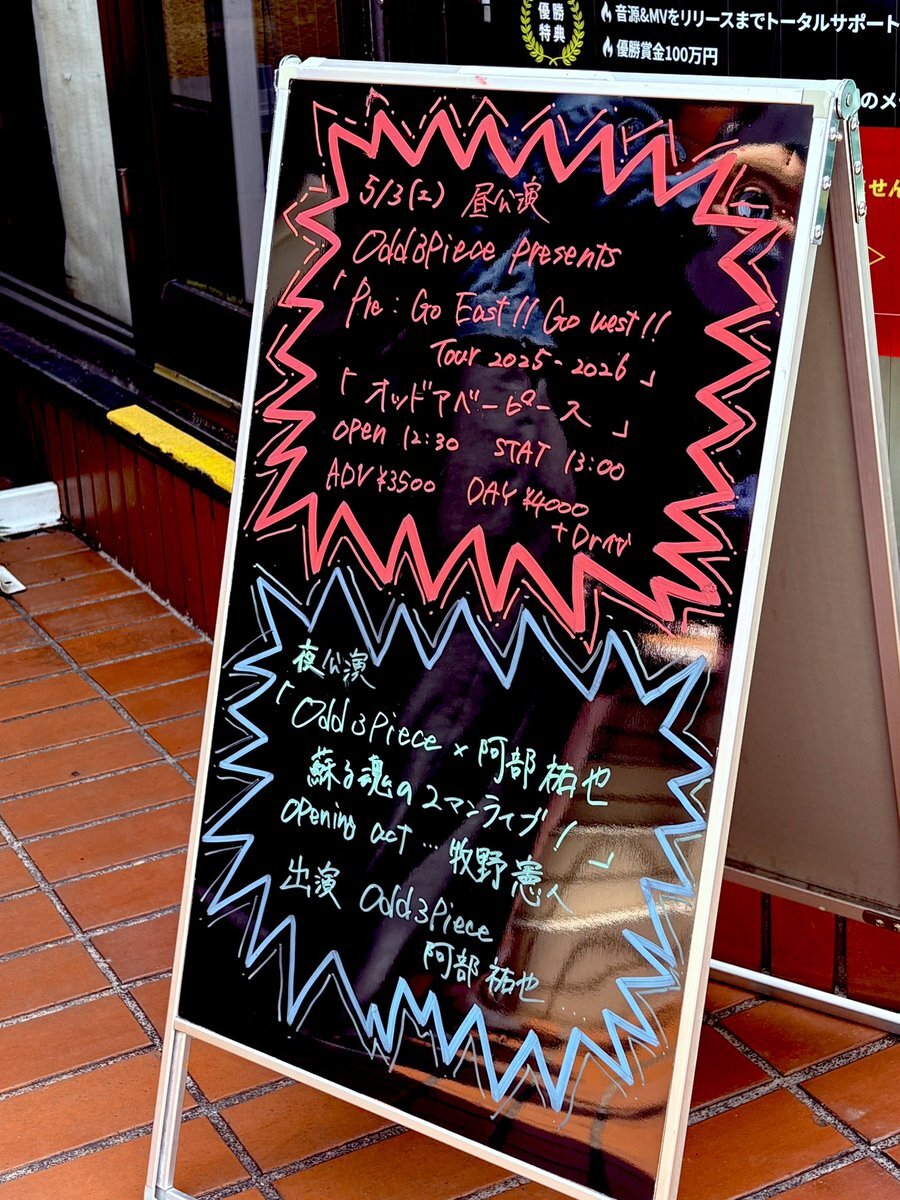 優勝
特典
音源&MVをリリースまでトータルサポート
優勝賞金100万円
のメ
せん
5/3(土) 昼公演
Odd3Piece presents
「Pre : Go East!! Go west!!
Tour 2025-2026」
「オッドアベーピース」
OPEN 12:30 STAT 13:00
ADV ¥3500 DAY ¥4000
夜公演
「Odd3Piece × 阿部祐也
蘇る魂の2マンライブ!」
opening act … 牧野憲人
出演 Odd3Piece
阿部祐也